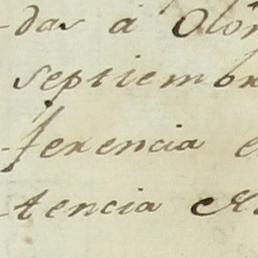 -das á Olón
septiembr
-ferencia e
-tencia